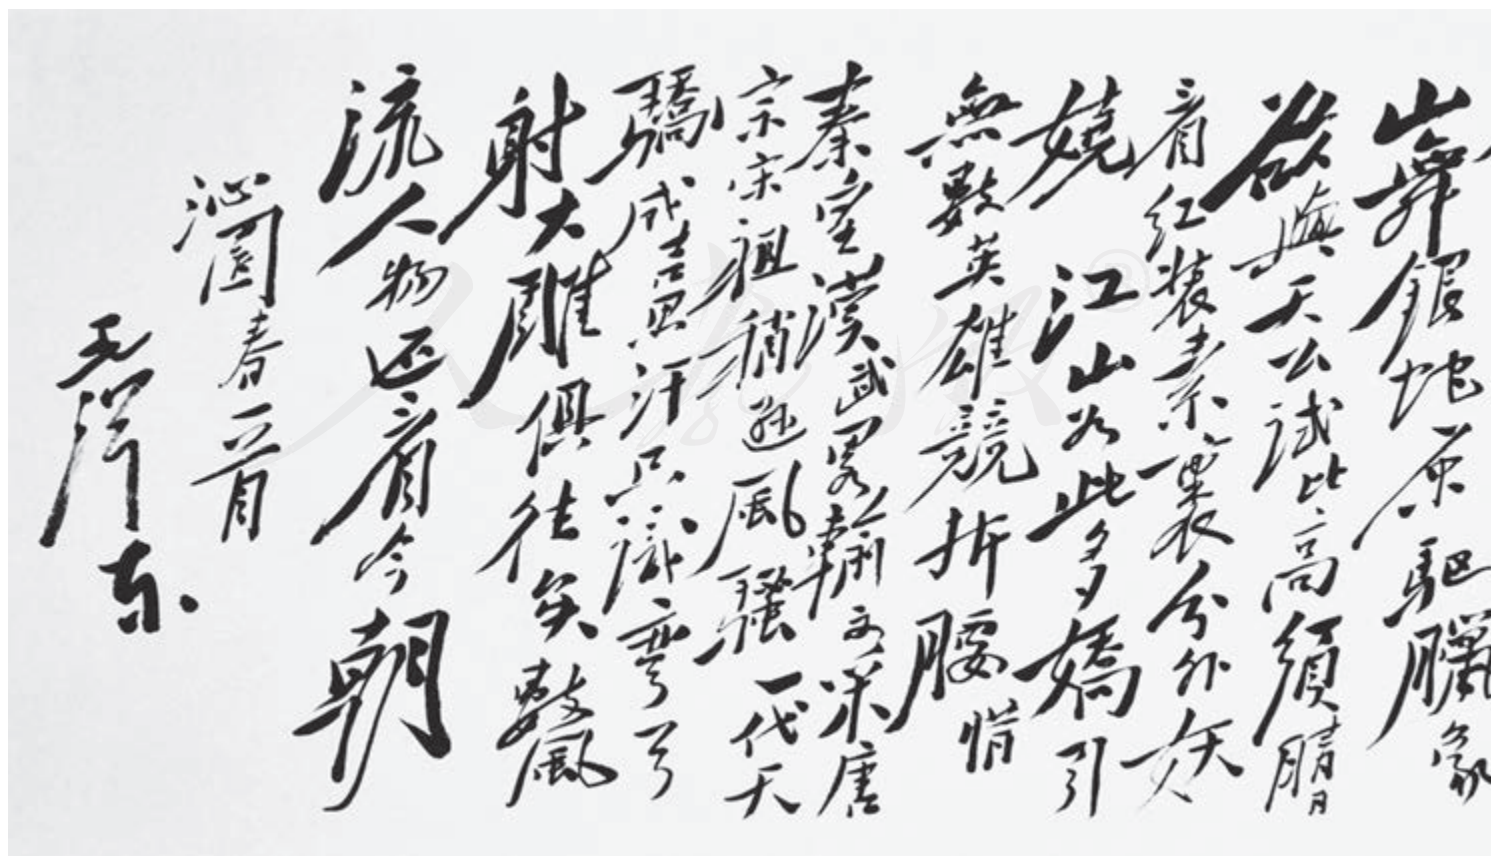 山舞銀蛇原馳臘象
欲與天公試比高須晴日
看红裝素裹分外妖
嬈 江山如此多嬌引
無數英雄競折腰惜
秦皇漢武畧輸文采唐
宗宋祖稍遜風騷一代天
驕成吉思汗只識彎弓
射大雕俱往矣數風
流人物还看今朝
沁園春一首
毛澤东